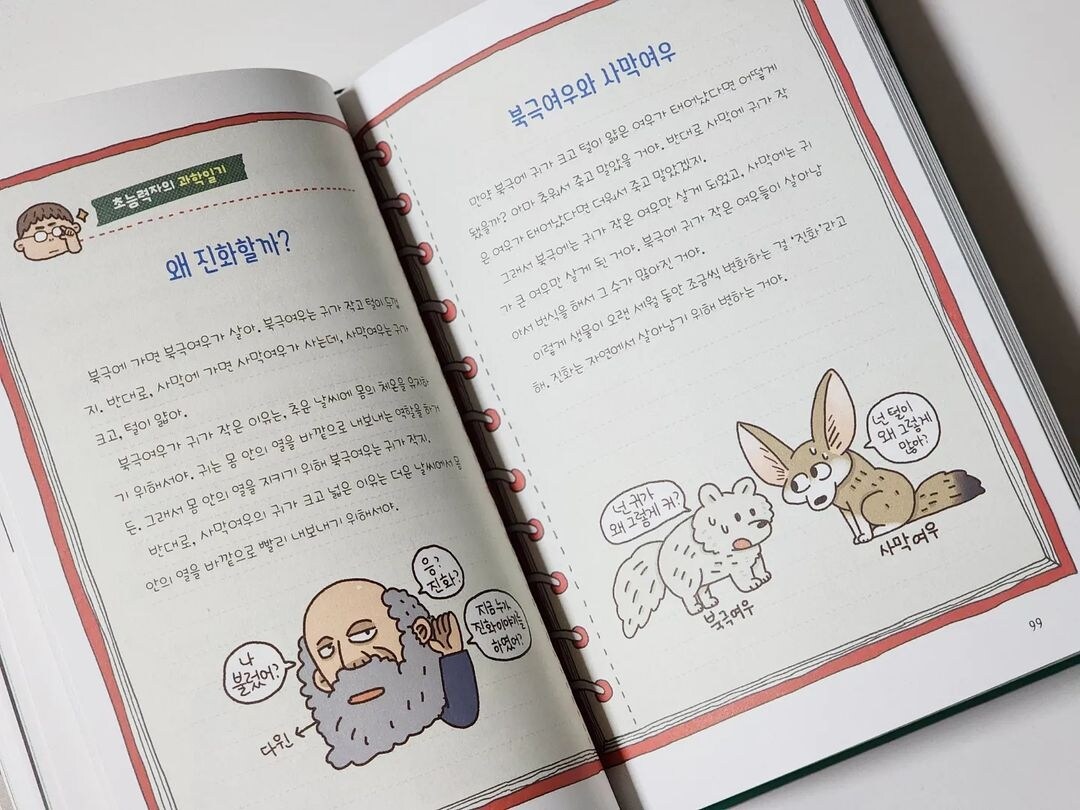 초능력자의 과학일기
왜 진화할까?
북극에 가면 북극여우가 살아. 북극여우는 귀가 작고 털이 두껍
지. 반대로, 사막에 가면 사막여우가 사는데, 사막여우는 귀가
크고, 털이 얇아.
북극여우가 귀가 작은 이유는, 추운 날씨에 몸의 체온을 유지하
기 위해서야. 귀는 몸 안의 열을 바깥으로 내보내는 역할을 하거
든. 그래서 몸 안의 열을 지키기 위해 북극여우는 귀가 작지.
반대로, 사막여우의 귀가 크고 넓은 이유는 더운 날씨에서 몸
안의 열을 바깥으로 빨리 내보내기 위해서야.
응?
진화?
지금 누가
진화 이야기를
하였어?
나
불렀어?
다윈
북극여우와 사막여우
만약 북극에 귀가 크고 털이 얇은 여우가 태어났다면 어떻게
됐을까? 아마 추워서 죽고 말았을 거야. 반대로 사막에 귀가 작
은 여우가 태어났다면 더워서 죽고 말았겠지.
그래서 북극에는 귀가 작은 여우만 살게 되었고, 사막에는 귀
가 큰 여우만 살게 된 거야. 북극에 귀가 작은 여우들이 살아남
아서 번식을 해서 그 수가 많아진 거야.
이렇게 생물이 오랜 세월 동안 조금씩 변화하는 걸 '진화'라고
해. 진화는 자연에서 살아남기 위해 변하는 거야.
넌 털이
왜 그렇게
많아?
넌 귀가
왜 그렇게 커?
사막여우
북극여우
99